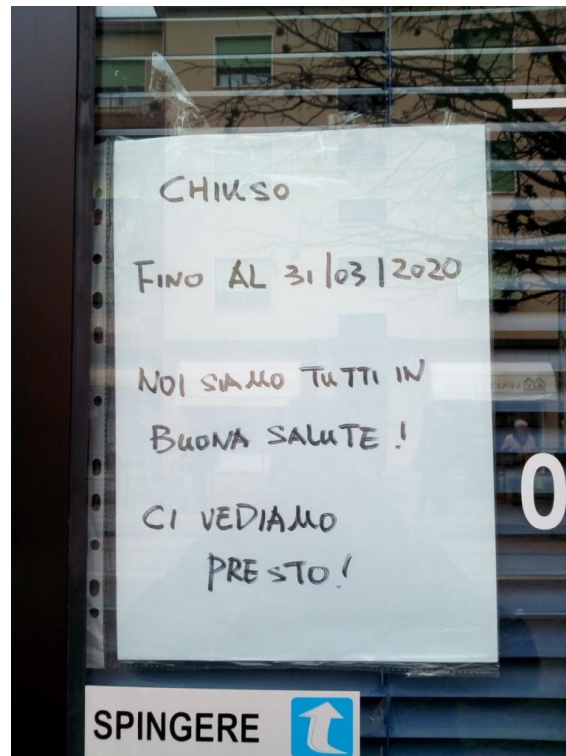 CHIUSO
FINO AL 31/03/2020
NOI SIAMO TUTTI IN
BUONA SALUTE!
CI VEDIAMO
PRESTO!
0
SPINGERE